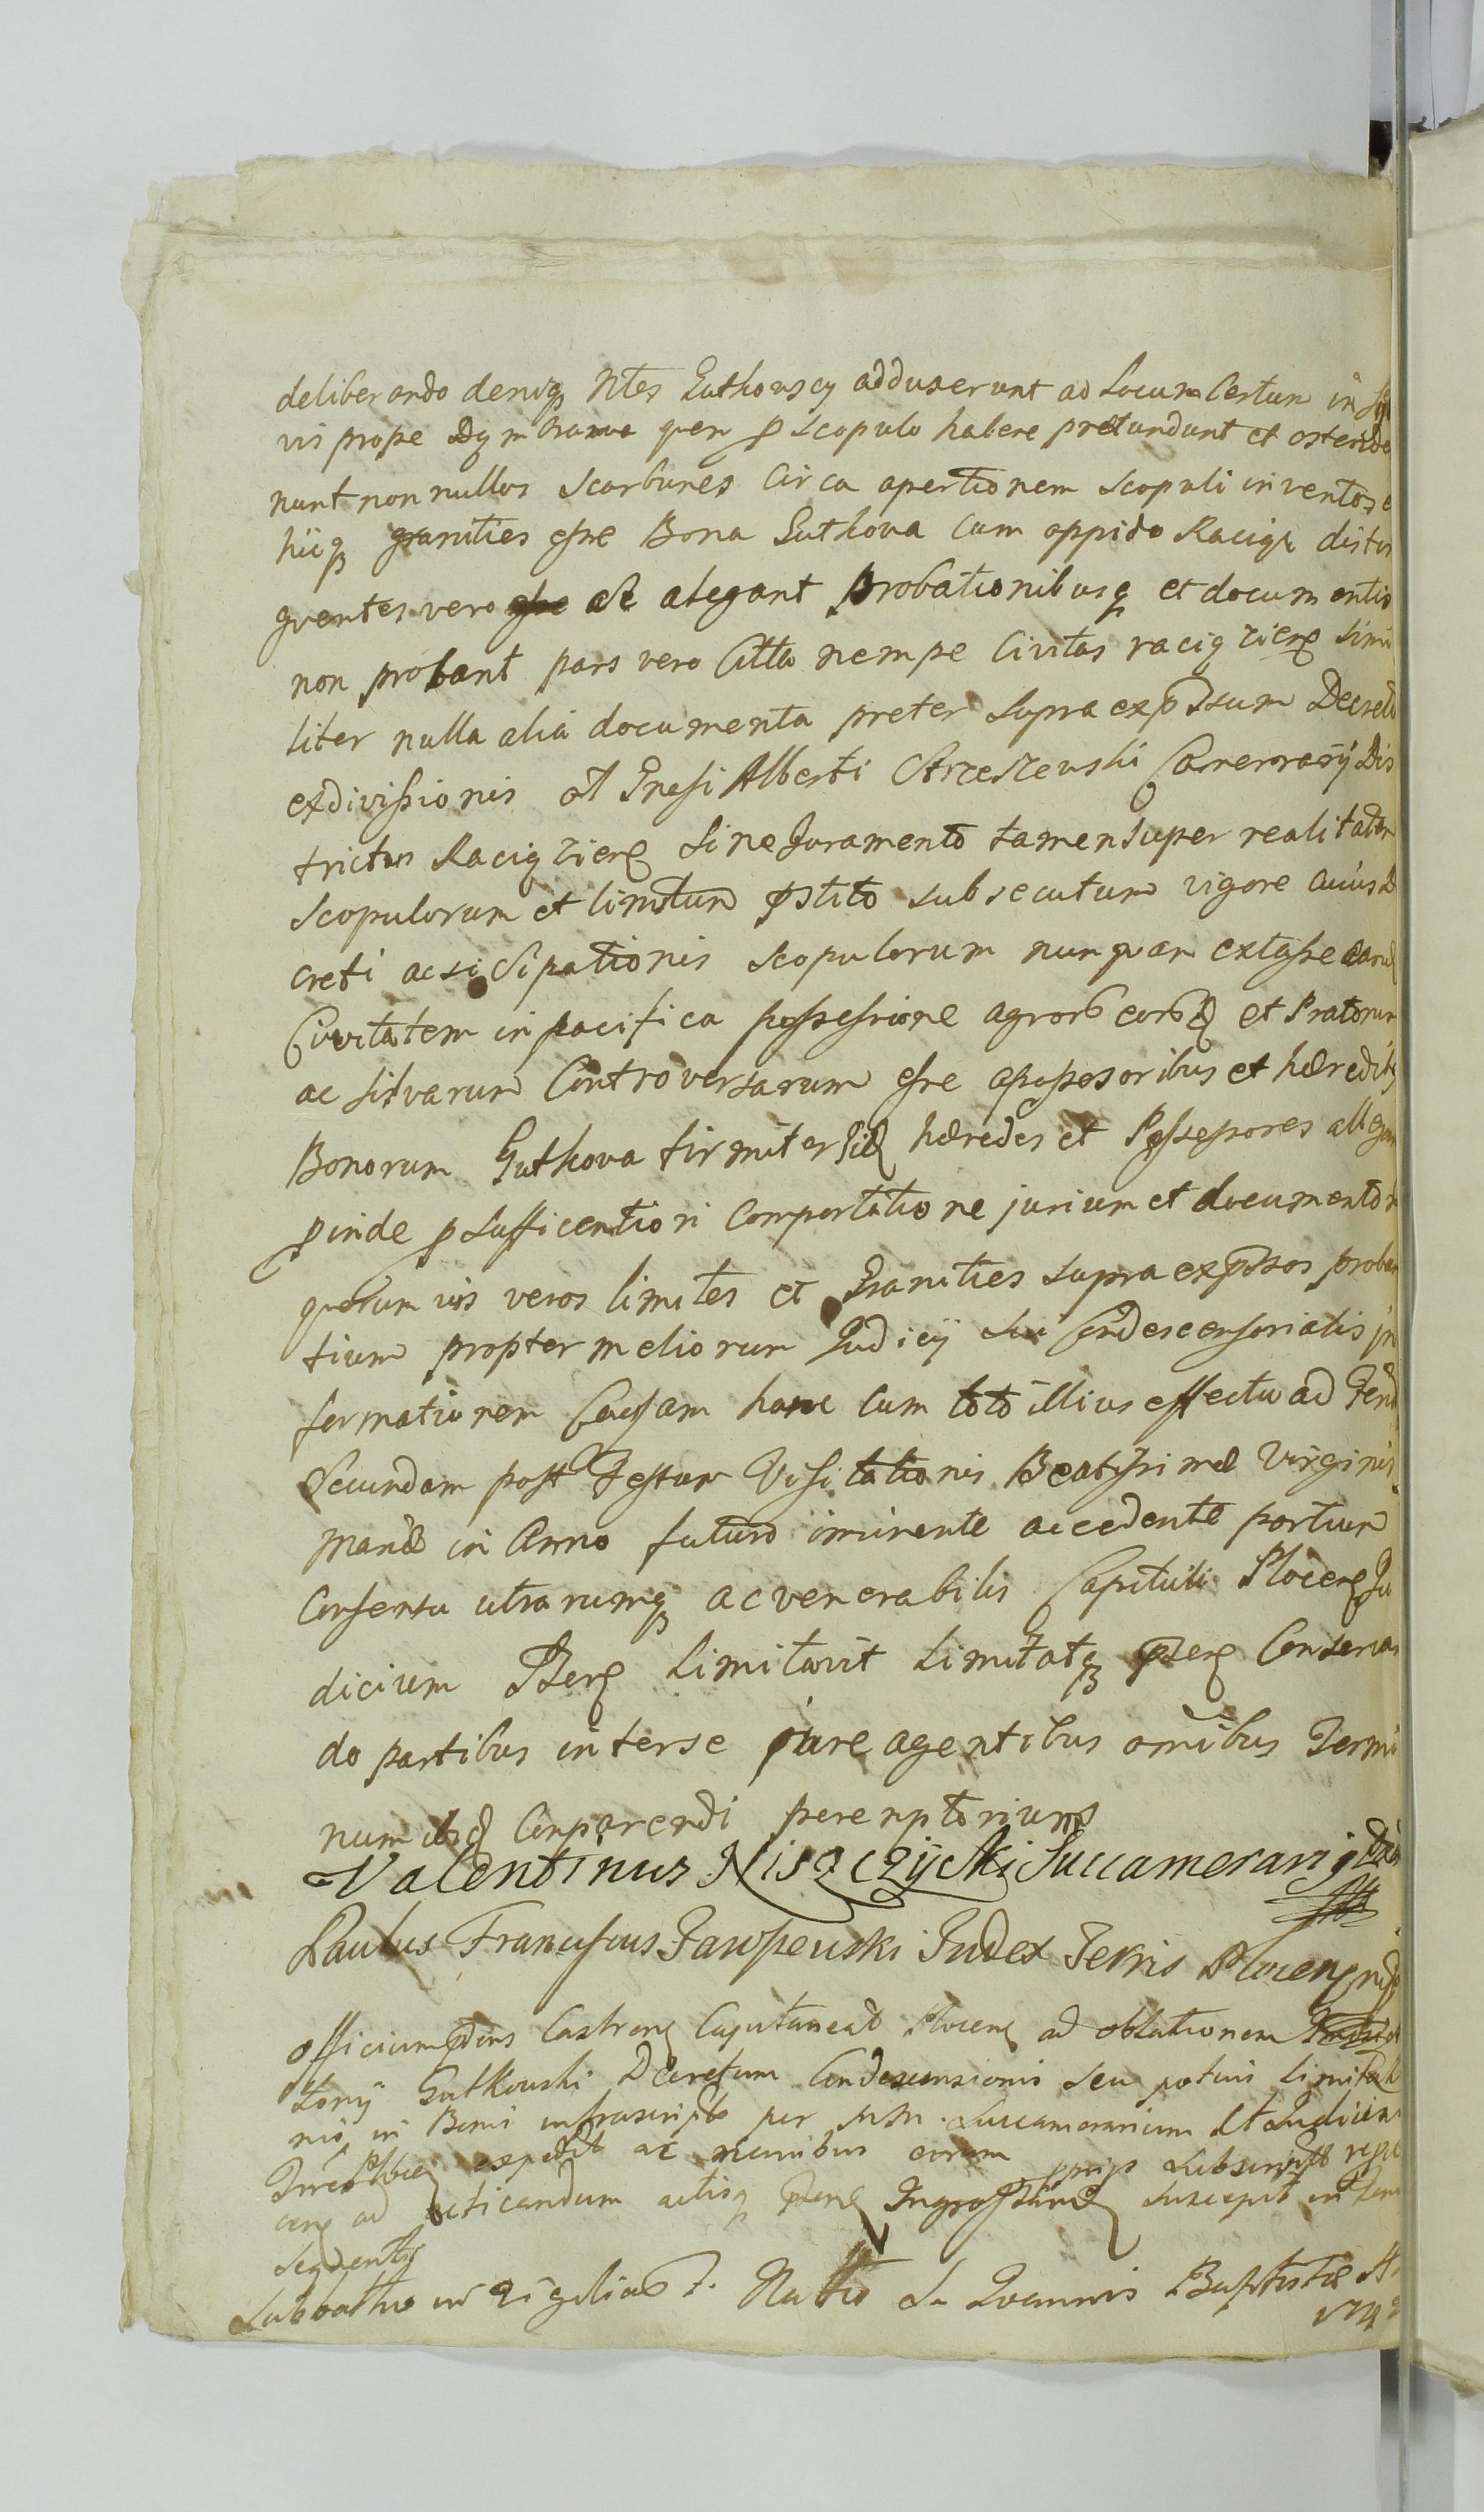 deliberando deniq Ntes Gutkouscy adduxerunt ad Locum Certum in
vis prope quem p scopulo habere pretundunt et ostend
nunt non nullos scarbunes Circa apertionem scopuli inventos
hicq granities esse Bona Gutkova Cum oppido Raciąz distin
guentes vero ac alegant probationibusq et documentis
non probant pars vero Citta nempe Civitas raciązieng simi
liter nulla alia documenta preter supra expssum Decretu
exdivissionis olt Gnesi Alberti Camerrarij Dis
trictus Raciązieng sine Juramento tamen super realitatem
scopulorum et limitum pstito subsecutum vigore cuius De
creti ac sicipationis scopulorum nunquam extasse eand
Civitatem in pacifica possessione agrorb eorbd et Pratorum
ac silvarum Controversarum esse apossesoribus et hæredib
Bonorum Gutkova firmiter iid hæredes et Possessores allegan
pinde p sufficentiori Comportatione jurium et documentor
quorum vis veros limites et Granities supra expssos proban
tium propter meliorum Judicij sui Condescensorialis in
formationem Causam hanc Cum toto illius effectu ad Feri
Secundam post Festum Visitationis Beatissimæ Virginis
Mariæ in Anno futuro iminente accedente partium
Consensu utrarumq ac venerabilis Capituli Plocens Ju
dicium Pseng limitavit Limitatq pseng Conservan
do partibus inter se jure agentibus omibus Termi
num ibid Comparendi peremptorium
Valentinus Niszczÿcki Succamerarig
Paulus Franciscus Jaroszewski Judex Terris Plocens
Officium pdens Castreng Capitaneal Plocens ad oblationem
Gutkouski Decretum Condescensionis seu potius limitatio
nis in Bonis infrascripto per Succamerarium Et Judicem
expedit ac manibus eorum ppijs Subscript
ad acticandum actisq pseng Ingrossand suscepit in
sequentis
Sabbatho in Vigilia F. Natto S. Joannis Baptistæ